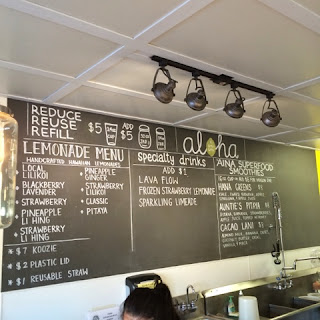 REDUCE
REUSE
REFILL
$5
ADD
$5
aloha
LEMONADE MENU
HANDCRAFTED HAWAIIAN LEMONADES
LOCAL
LILIKOI
BLACKBERRY
LAVENDER
STRAWBERRY
PINEAPPLE
LI HING
STRAWBERRY
LI HING
PINEAPPLE
GINGER
STRAWBERRY
LILIKOI
CLASSIC
PITAYA
* $7 KOOZIE
* $2 PLASTIC LID
* $1 REUSABLE STRAW
specialty drinks
ADD $1
LAVA FLOW
FROZEN STRAWBERRY LEMONADE
SPARKLING LIMEADE
AINA SUPERFOOD
SMOOTHIES
HANA GREENS
AUNTIE'S PITAYA
CACAO LANI